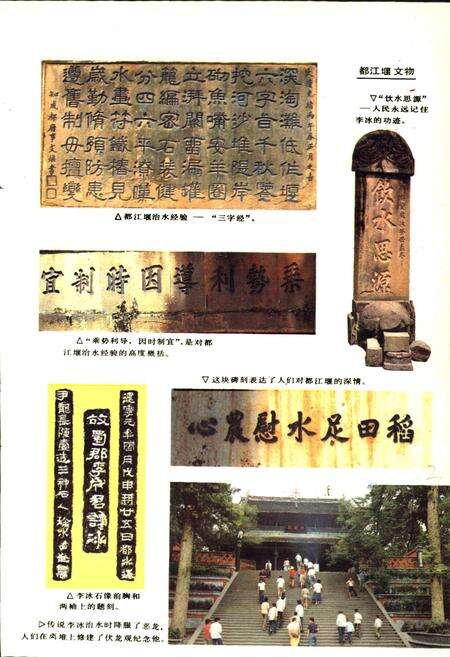 都江堰文物
深淘灘低作堰
六字旨千秋鑒
挖河沙堆隄岸
砌魚嘴安羊圈
立湃闕留漏罐
籠編密石裝健
分四六平潦暵
水畫符鐵樁見
歲勤修預防患
遵舊制毋擅變
△都江堰治水经验 — “三字经”。
▽“饮水思源”
—人民永远记住
李冰的功迹。
飲水思源
乘勢利導因時制宜
△“乘势利导，因时制宜”，是对都
江堰治水经验的高度概括。
▽这块碑刻表达了人们对都江堰的深情。
稻田足水慰農心
建寧元年閏月戊申朔廿五日都水掾
故蜀郡李府君諱冰
尹龍長陳壹造三神石人珍水萬世焉
△李冰石像前胸和
两袖上的题刻。
▷传说李冰治水时降服了恶龙，
人们在离堆上修建了伏龙观纪念他。